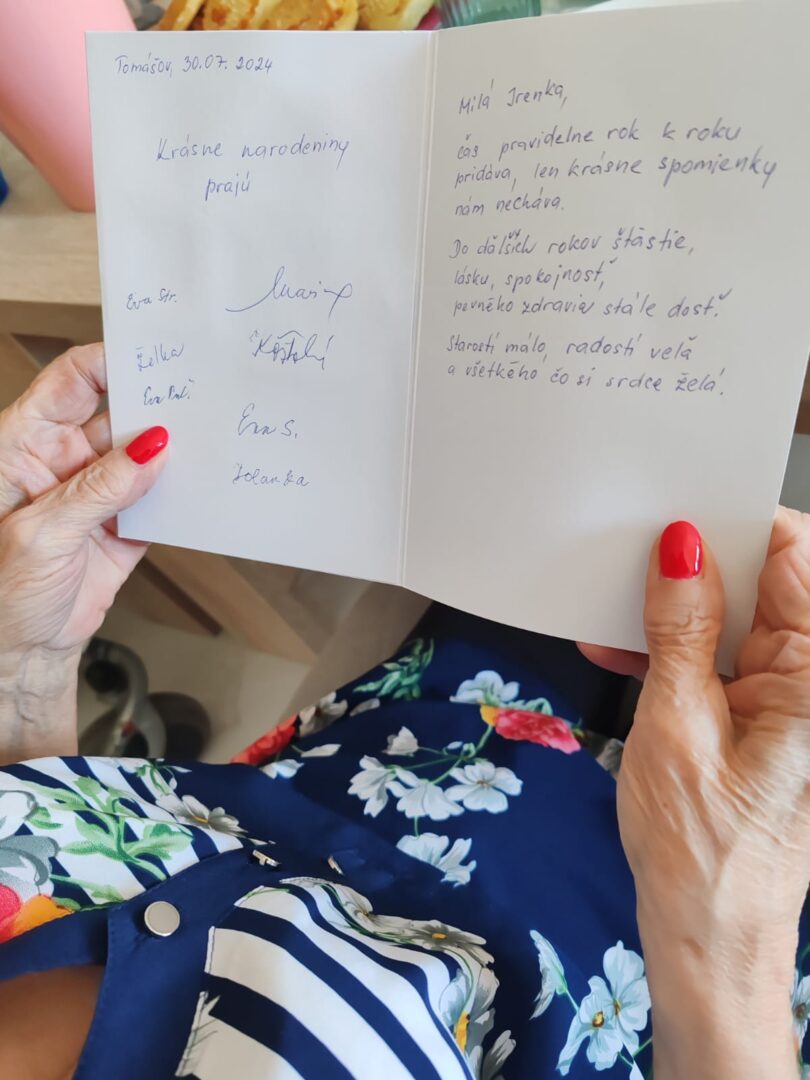 Tomášov, 30.07. 2024
Krásne narodeniny
prajú
Eva Str.
Želka
Eva S.
Jolanka
Milá Irenka,
čas pravidelne rok k roku
pridáva, len krásne spomienky
nám necháva.
Do ďalších rokov štastie,
lásku, spokojnosť,
pevného zdravia stále dosť.
Starostí málo, radostí veľa
a všetkého, čo si srdce želá.